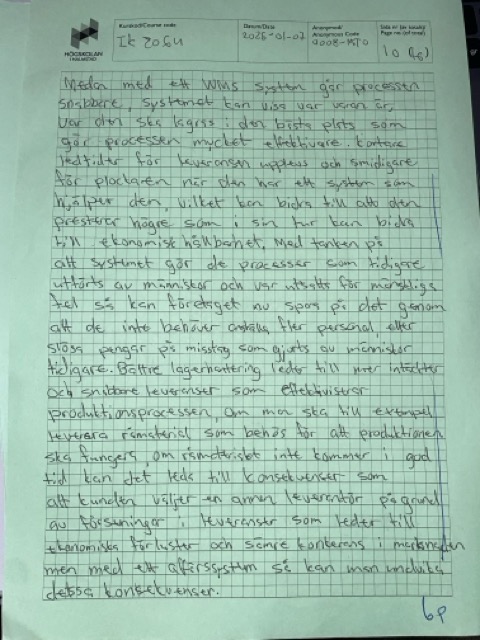 HÖGSKOLAN
I HALMSTAD
Kurskod/Course code
Datum/Date
Anonymkod/
Anonymous Code
IK2064
2026-01-07
9008-
10 (16)
Medan med ett WMS system går processen
snabbare, systemet kan visa var varan är,
var den ska lagras i den bästa plats som
gör processen mycket effektivare. kortare
ledtider för leveransen upplevs och smidigare
för plockaren när den har ett system som
hjälper den, vilket kan bidra till att den
presterar högre som i sin tur kan bidra
till ekonomisk hållbarhet. Med tanken på
att systemet gör de processer som tidigare
utförts av människor och var utsatta för mänskliga
fel så kan företaget nu spara på det genom
att de inte behöver anställa fler personal, eller
slösa pengar på misstag som gjorts av människor
tidigare. Bättre lagerhantering leder till mer intäkter
och snabbare leveranser som effektiviserar
produktionsprocessen, om man ska till exempel
leverera råmaterial som behövs för att produktionen
ska fungera, om råmaterialet inte kommer i god
tid kan det leda till konsekvenser som
att kunden väljer en annan leverantör på grund
av förseningar i leveranser som leder till
ekonomiska förluster och sämre konkurrens i marknaden
men med ett affärssystem så kan man undvika
dessa konsekvenser.
6p